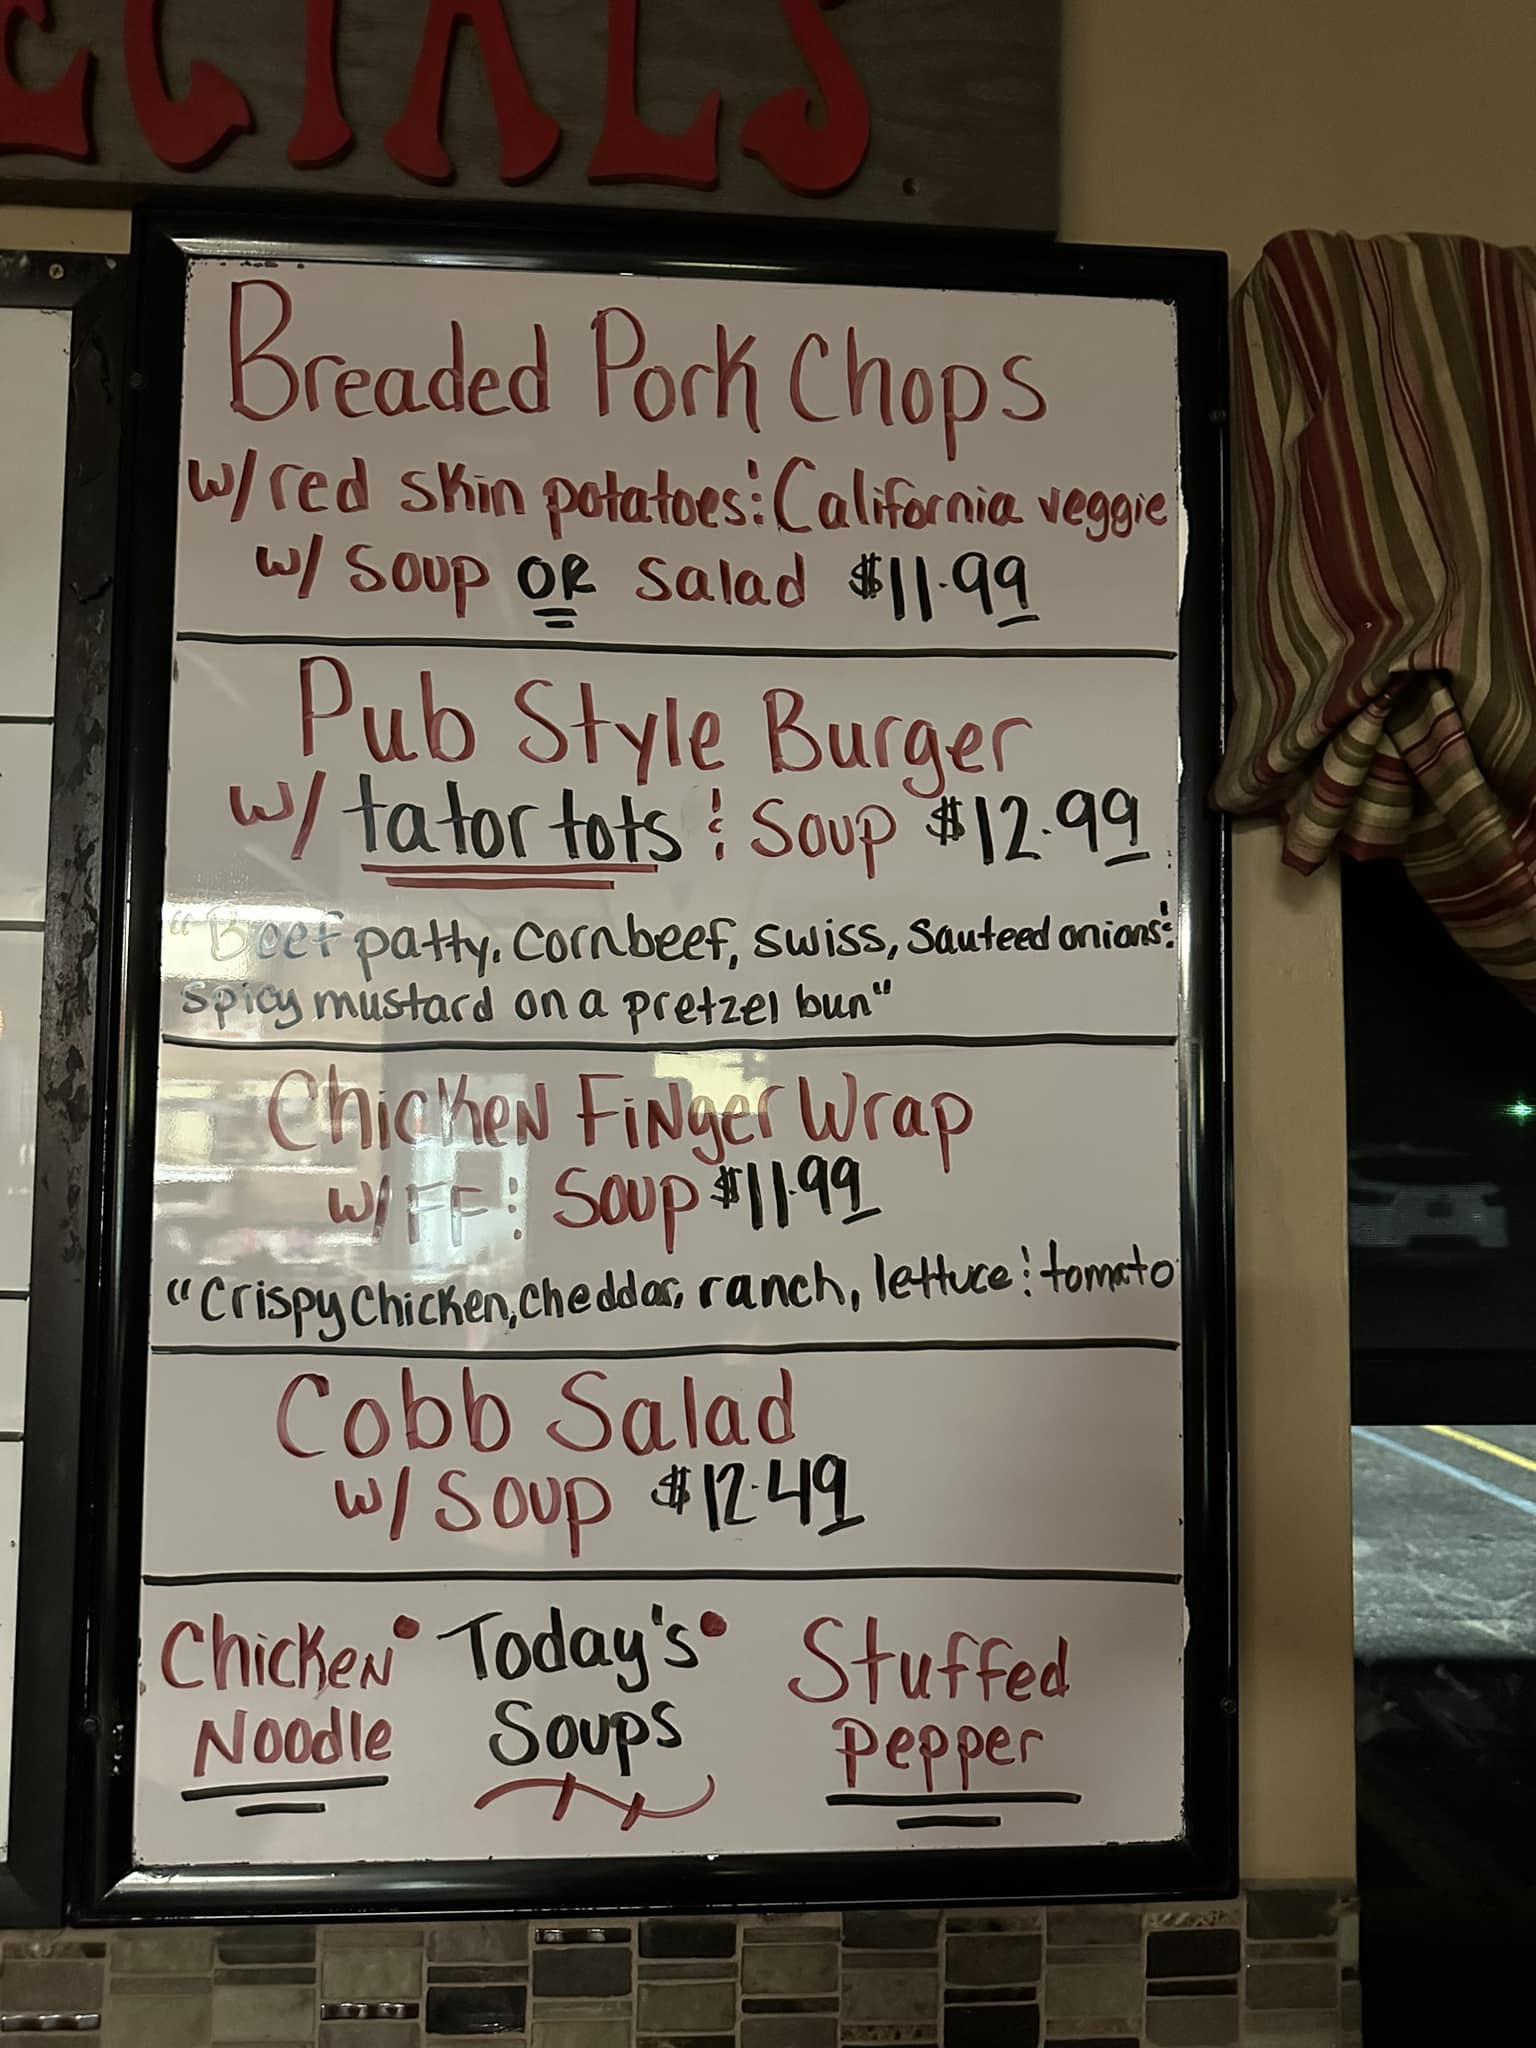 ECIALS
Breaded Pork Chops
w/ red skin potatoes & California veggie
w/ soup OR salad $11.99
Pub Style Burger
w/ tator tots & Soup $12.99
"Beef patty, cornbeef, swiss, sauteed onions &
spicy mustard on a pretzel bun"
Chicken Finger Wrap
w/ FF & Soup $11.99
"Crispy chicken, cheddar, ranch, lettuce & tomato
Cobb Salad
w/ Soup $12.49
Chicken • Today's • Stuffed
Noodle Soups Pepper